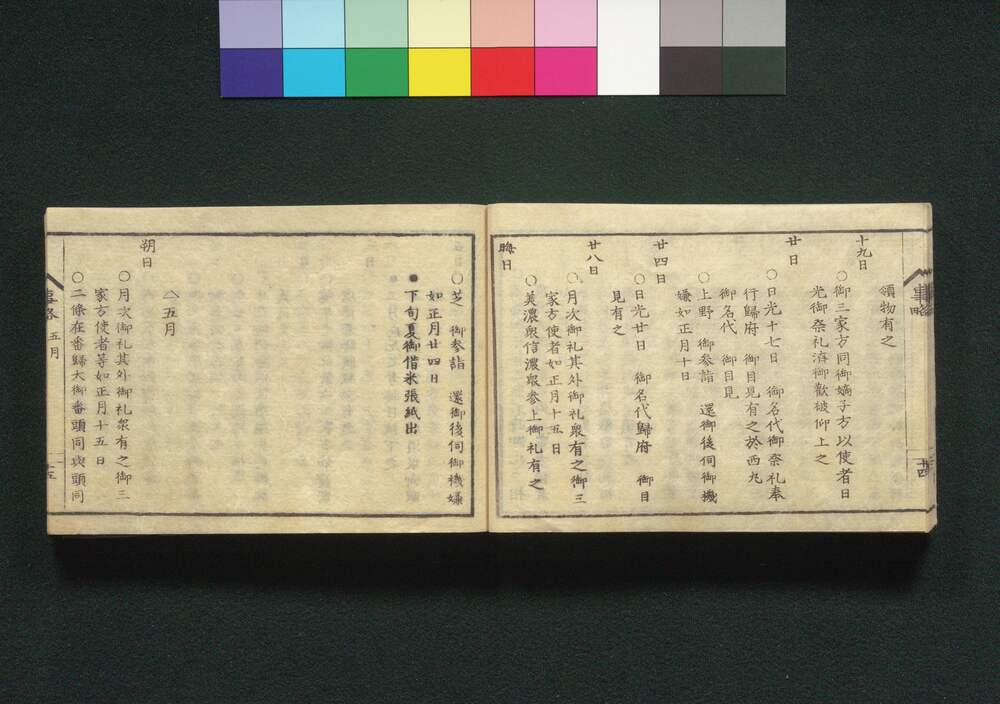 領物有之
十九日
○御三家方同御嫡子方以使者日
光御祭礼済御歓被仰上之
廿日
○日光十七日 御名代御祭礼奉
行歸府 御目見有之於西丸
御名代 御目見
○上野 御参詣 還御後伺御機
嫌如正月十日
廿四日
○日光廿日 御名代歸府 御目
見有之
廿八日
○月次御礼其外御礼衆有之御三
家方使者如正月十五日
○美濃衆信濃衆参上御礼有之
晦日
○芝 御参詣 還御後伺御機嫌
如正月廿四日
●下旬夏御借米張紙出
五月
朔日
○月次御礼其外御礼衆有之御三
家方使者等如正月十五日
○二條在番歸大御番頭同与頭同
五月